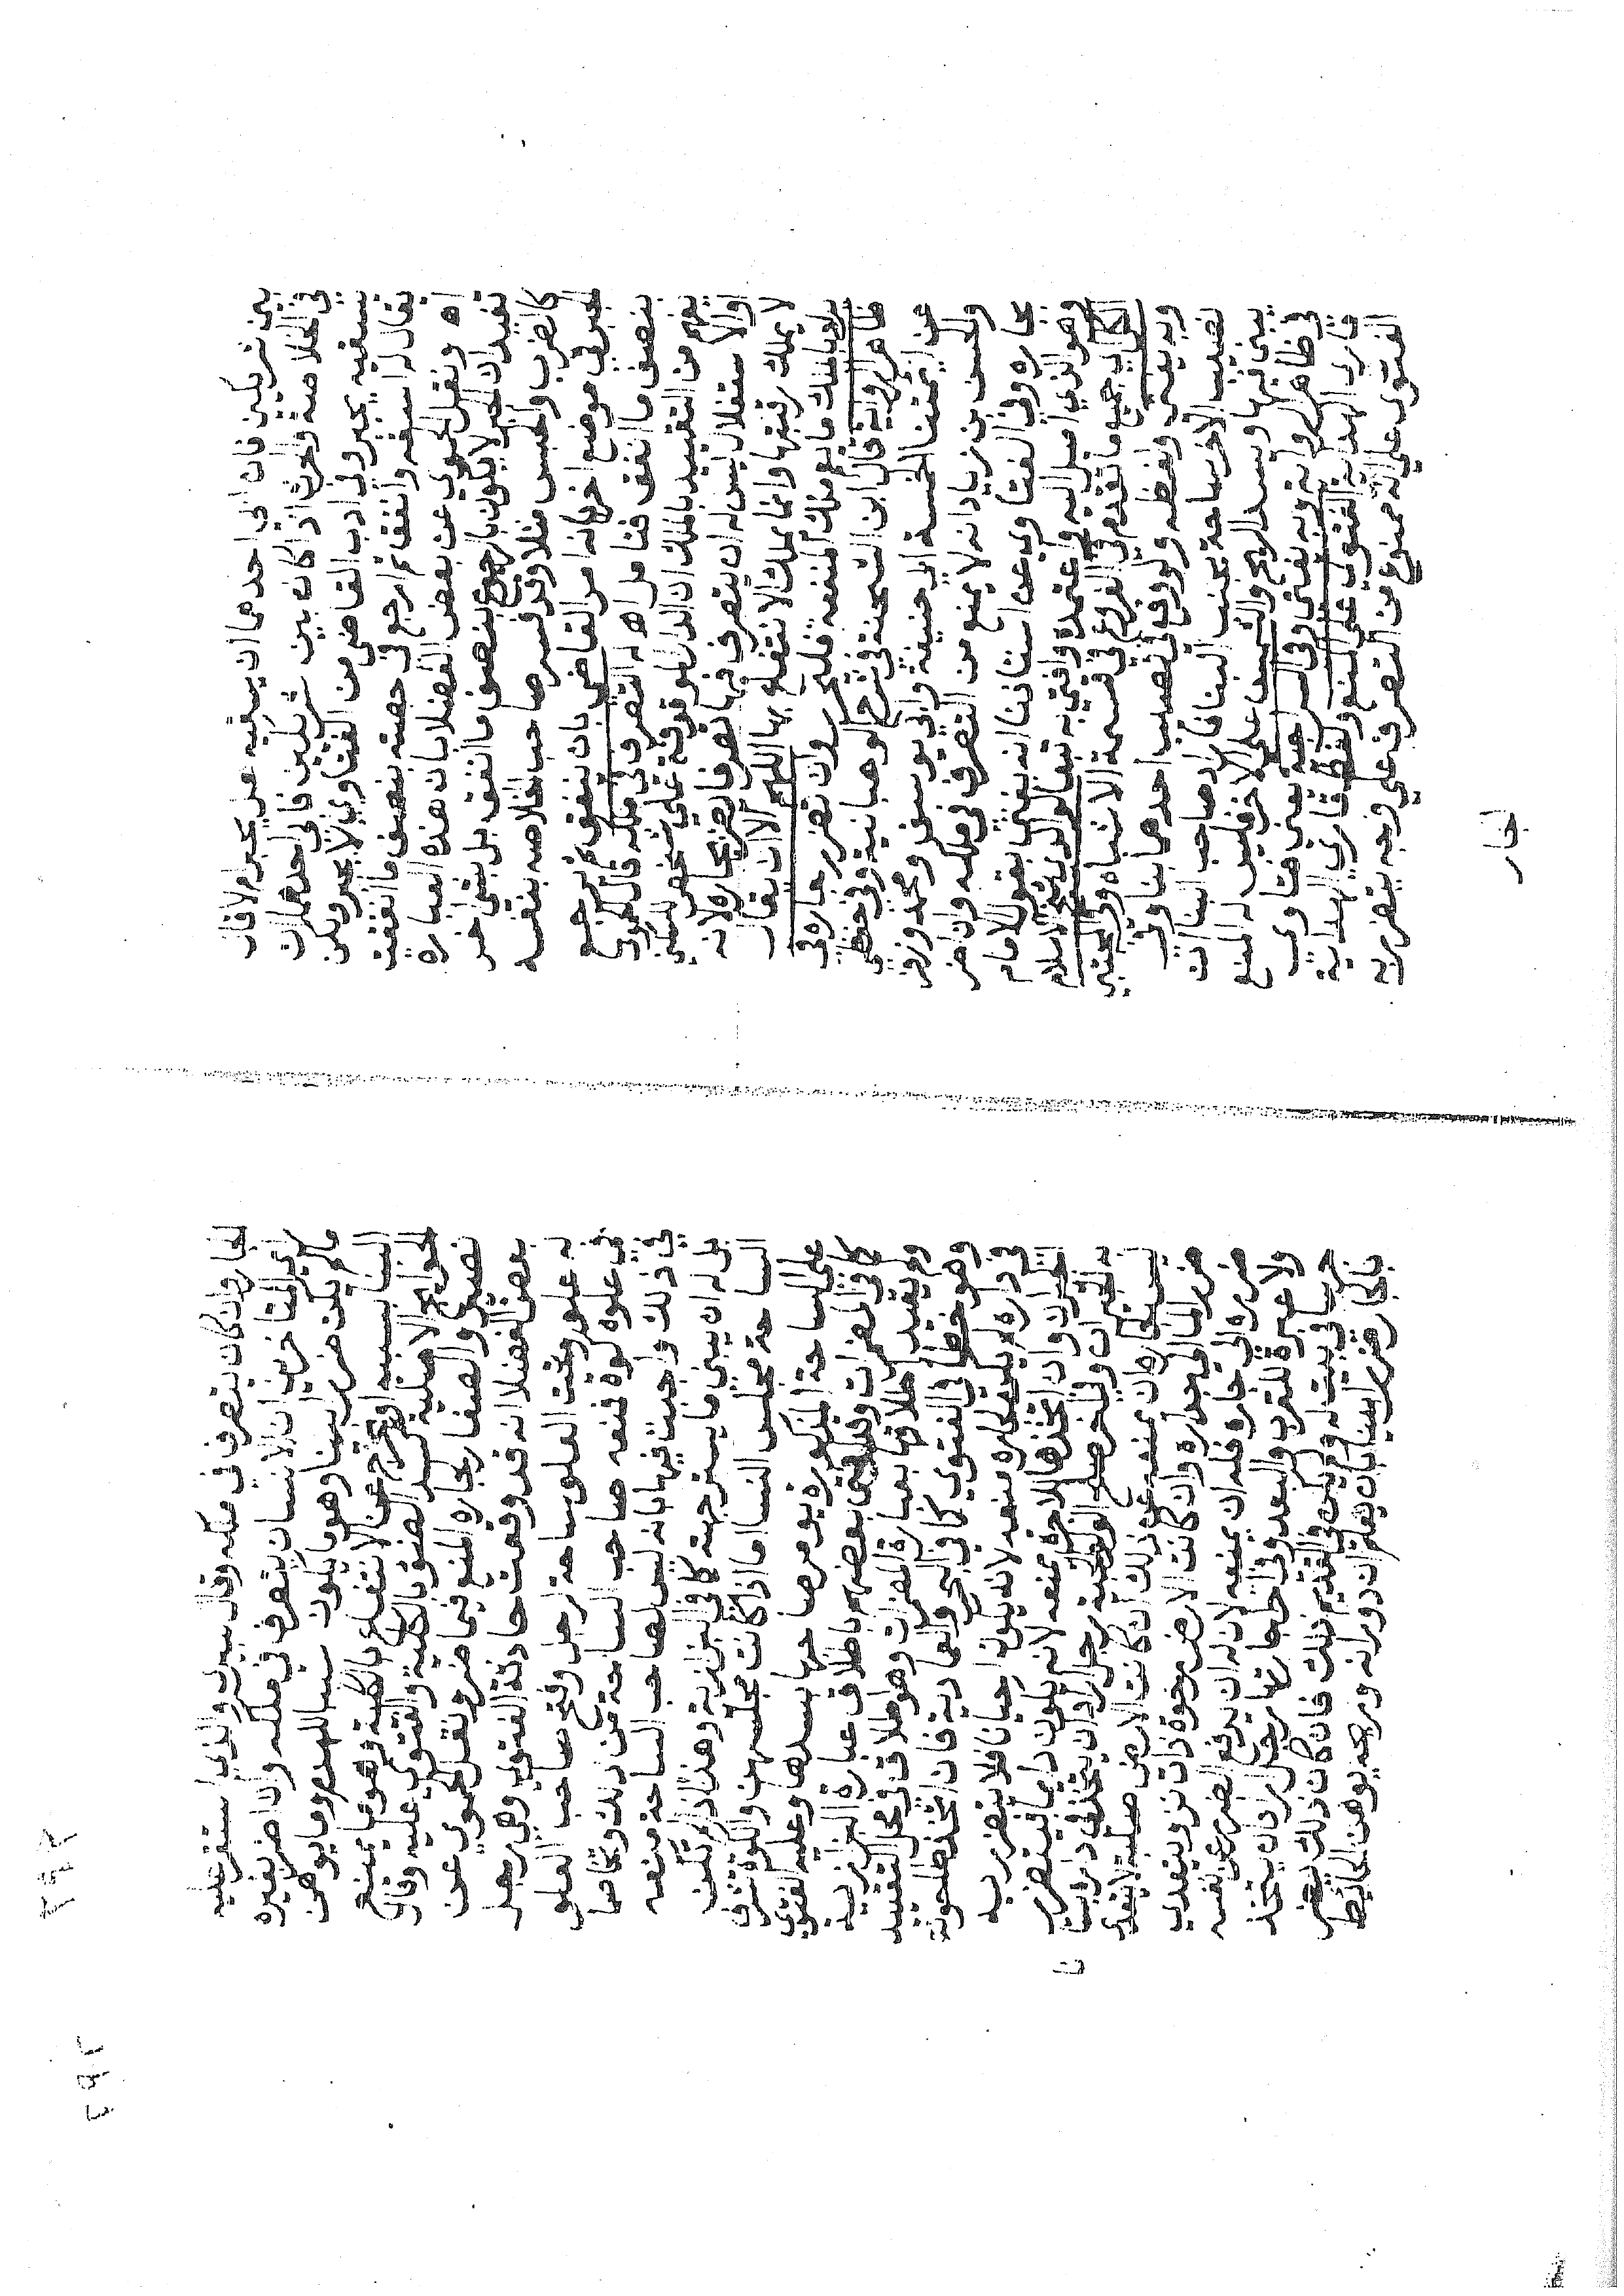 بين شريكين فان ابي احدهما ان يسقيه هل يجبر ام لا قال
في الخلاصة والحرث اذا كان بين شريكين فابي احدهما ان
يسقيه يجبر وفي ادب القاضي من الفتاوي لا يجبر ولكن
يقال له اسقه وانفق ثم ارجع في حصته بنصف ما انفقت
اه ونقل الحموي عن بعض الفضلا بان هذه العبارة
تفيد ان الجبر لا يكون بالرجوع بنصف ما انفق بل بشي اخر
كالضرب والحبس مثلا وقد فسر صاحب الخلاصه بنفسه
الجبر في موضع اخر بانه امر القاضي بان ينفق ثم يرجع
بنصف ما انفق فتامل اه له التصرف في ملكه قال الحموي
يفهم من التقييد بالملك ان الدار الموقوفة على شخص للسكني
او الاستغلال ليس له ان يتصرف فيها تصرفا يضر بجاره لانه
لا يملك رقبتها وانما يملك الانتفاع بها اللهم الا ان يقال
بالملك ما يعم ملك المنفعه فليحرر وان تضرر جاره في
ظاهر الرواية قال ابن الشحنة في شرح الوهبانية وفي حفظي
عن ايمتنا الخمسة ابي حنيفة وابي يوسف ومحمد وزفر
والحسن بن زياد انه لا يمنع من التصرف في ملكه وان اضر
بجاره وفي الفتاوي عن استاذنا انه يفتي بقول الامام
وهو الذي اميل اليه واعتمده وافتي به تبعا لوالدي شيخ الاسلام
جميع ما تقدم في الفروع في قسمة الاشباه وفي المجتبي
وبه يفتي ولفظه ولو وقع في نصيب احدهما بنا وفي
نصيب الاخر ساحة بجنب البنا فاراد صاحب البنا ان
يبني فيها ويسد الريح والشمس على الاخر فليس له المنع
في ظاهر الرواية وبه يفتي وفي السراجية يعني فتاوي
قاري الهداية الفتوي علي المنع ولفظ قاري الهداية
الفتوى علي انه ممنوع من التصرف علي وجه يتضرر به
الجار
الجار وان كان يتصرف في ملكه وقال بيري والذي استقر عليه
راي المتاخرين ان الانسان يتصرف في ملكه وان اضر بغيره
ما لم يكن ضررا بينا وهو ما يكون سببا للهدم وما يوهن
البنا بسببه او يخرج عن الانتفاع بالكلية وهو ما يمنع
الحوايج الاصلية كسد الضوء بالكلية والفتوي عليه وقال
نصير والصفار لجاره المنع فيما ضر ونقل الحموي عن
بعض الفضلا انه قد وقعت حادثة الفتوي وهي رجل
له علو وتحت العلو ساحة لرجل وفتح صاحب العلو
في علوه كوة فمنعه صاحب الساحة من ذلك وتخاصما
في ذلك واجبت فيها بانه ليس لصاحب الساحة منعه
بل له ان يبني ما يستر جهته كما في البزازية وهذا اذا لم تكن
الساحة مجلس النسا اما اذا كانت مجلسهن والكوة تشرف
علي الساحة المذكورة يومر صاحبها بسدها وعليه الفتوي
كما في المضمرات وقد افتي بعضهم باطلاق عبارة البزازية
ولم يقيد اطلاقها بعبارة المضمرات وهو اطلاق في محل التقييد
وهو خطأ في الفتوي كما في البحر والعمادية فان اتخذ طاحونة
في داره لم يكن لجاره منعه لانه يكون احيانا فلا يتضرر به
الجيران وان اتخذها للاجرة يمنعه لانه يكون دايما فيتضرر
به الجيران وفي اخر صلح الولوالجية رجل اراد ان يتخذ في داره
بستانا لجاره ان يمنعه عن ذلك ان كانت الارض صلبة لا يتعدي
ضرر الما الي جداره وان كانت الارض رخوة ذات نز ويتعدي
ضرره الي جاره فله ان يمنعه لان له ان يدفع الضرر عن نفسه
ولا عبرة للقرب والبعد وفي اجارتها رجل اراد ان يتخذ
في بيته ولم يكن في القديم ذلك فان كان ذلك يضر
بالجار ضررا بينا بان يعلم ان دورانه وريحه يوهن الحايط